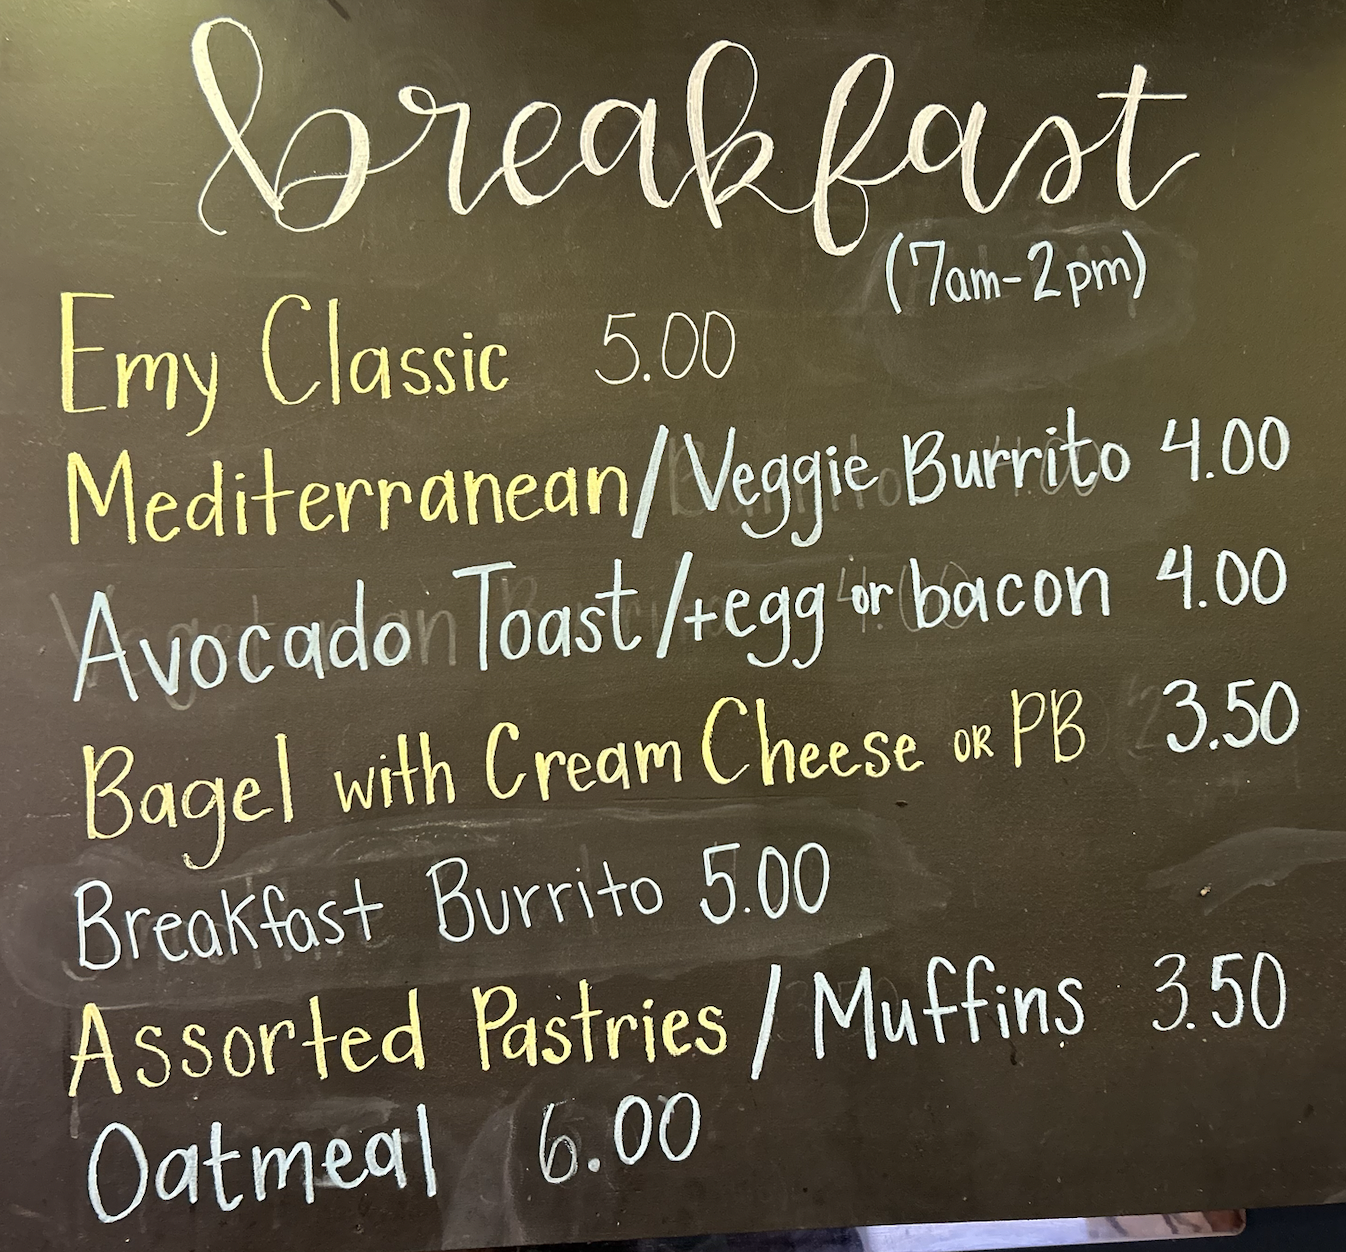 breakfast
(7am-2pm)
Emy Classic 5.00
Mediterranean/Veggie Burrito 4.00
Avocado Toast/+egg or bacon 4.00
Bagel with Cream Cheese OR PB 3.50
Breakfast Burrito 5.00
Assorted Pastries / Muffins 3.50
Oatmeal 6.00